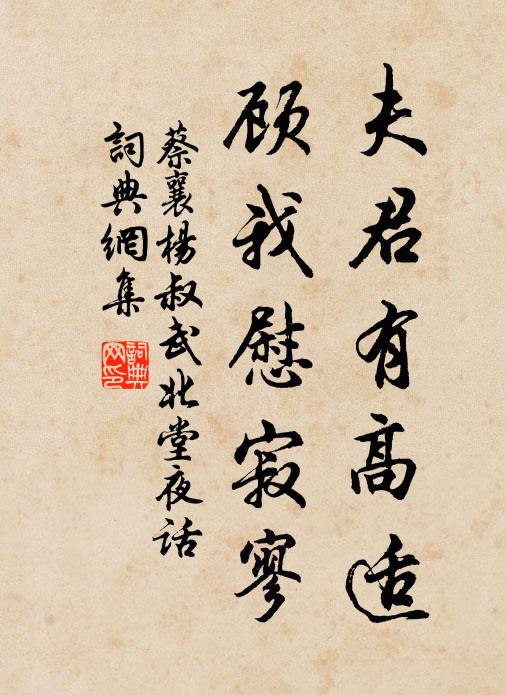 夫君有高适
顾我慰寂寥
蔡襄杨叔武北堂夜话
詞典網集
詞典網印